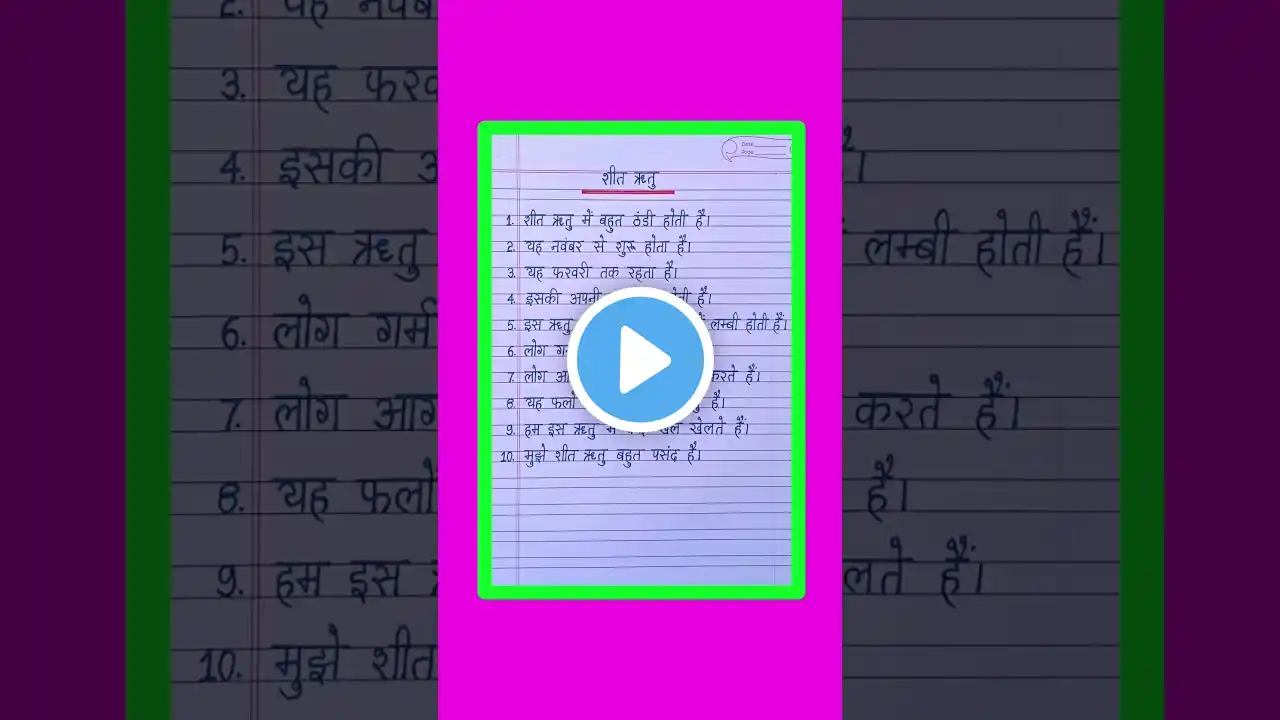 Date
Page
शीत ऋतु
1. शीत ऋतु में बहुत ठंडी होती है।
2. यह नवंबर से शुरू होता है।
3. यह फरवरी तक रहता है।
4. इसकी अपनी होती है।
5. इस ऋतु लम्बी होती हैं।
6. लोग गर्म
7. लोग आग करते हैं।
8. यह फलों है।
9. हम इस ऋतु में खेल खेलते हैं।
10. मुझे शीत ऋतु बहुत पसंद है।